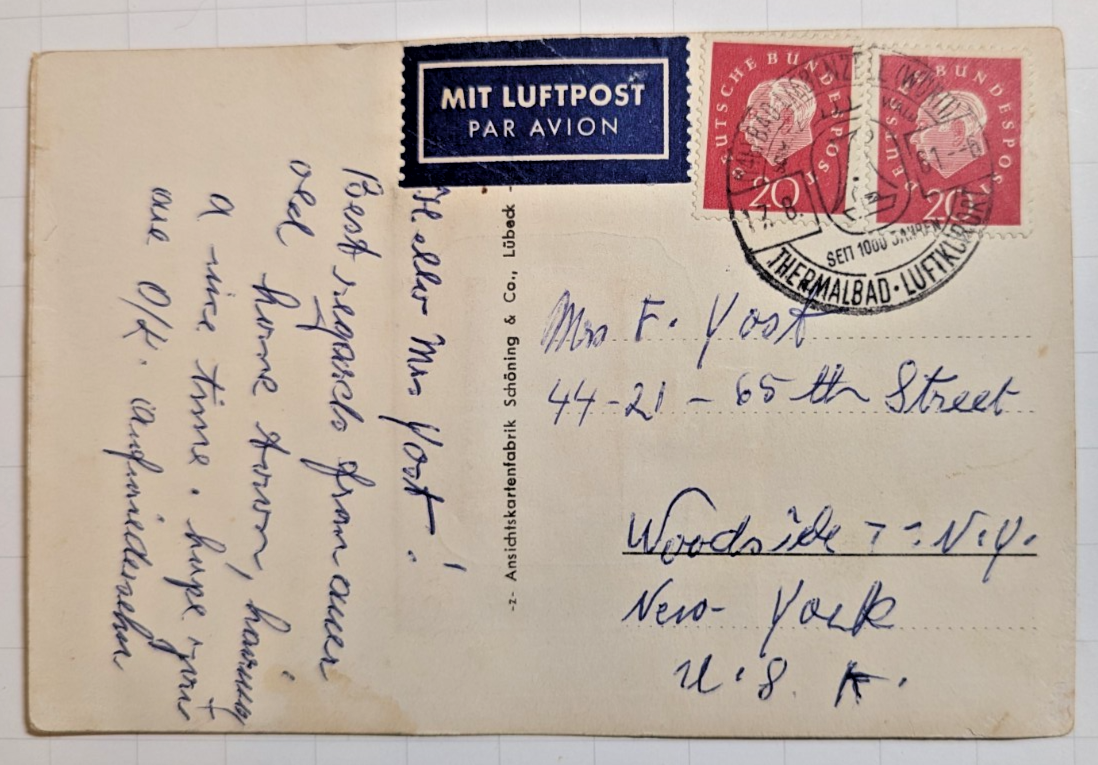 MIT LUFTPOST
PAR AVION
DEUTSCHE BUNDESPOST
20
DEUTSCHE BUNDESPOST
20
BAD LIEBENZELL (WÜRTT)
17.8.61-8
SEIT 1000 JAHREN
THERMALBAD · LUFTKURORT
Hello Mrs Yost!
Best regards from auer
old home town, having
a nice time. hope you
are O/K. Aufwiedersehn
-z- Ansichtskartenfabrik Schöning & Co., Lübeck -
Mrs F. Yost
44-21-65th Street
Woodside 77 N.Y.
New-York
U.S.A.